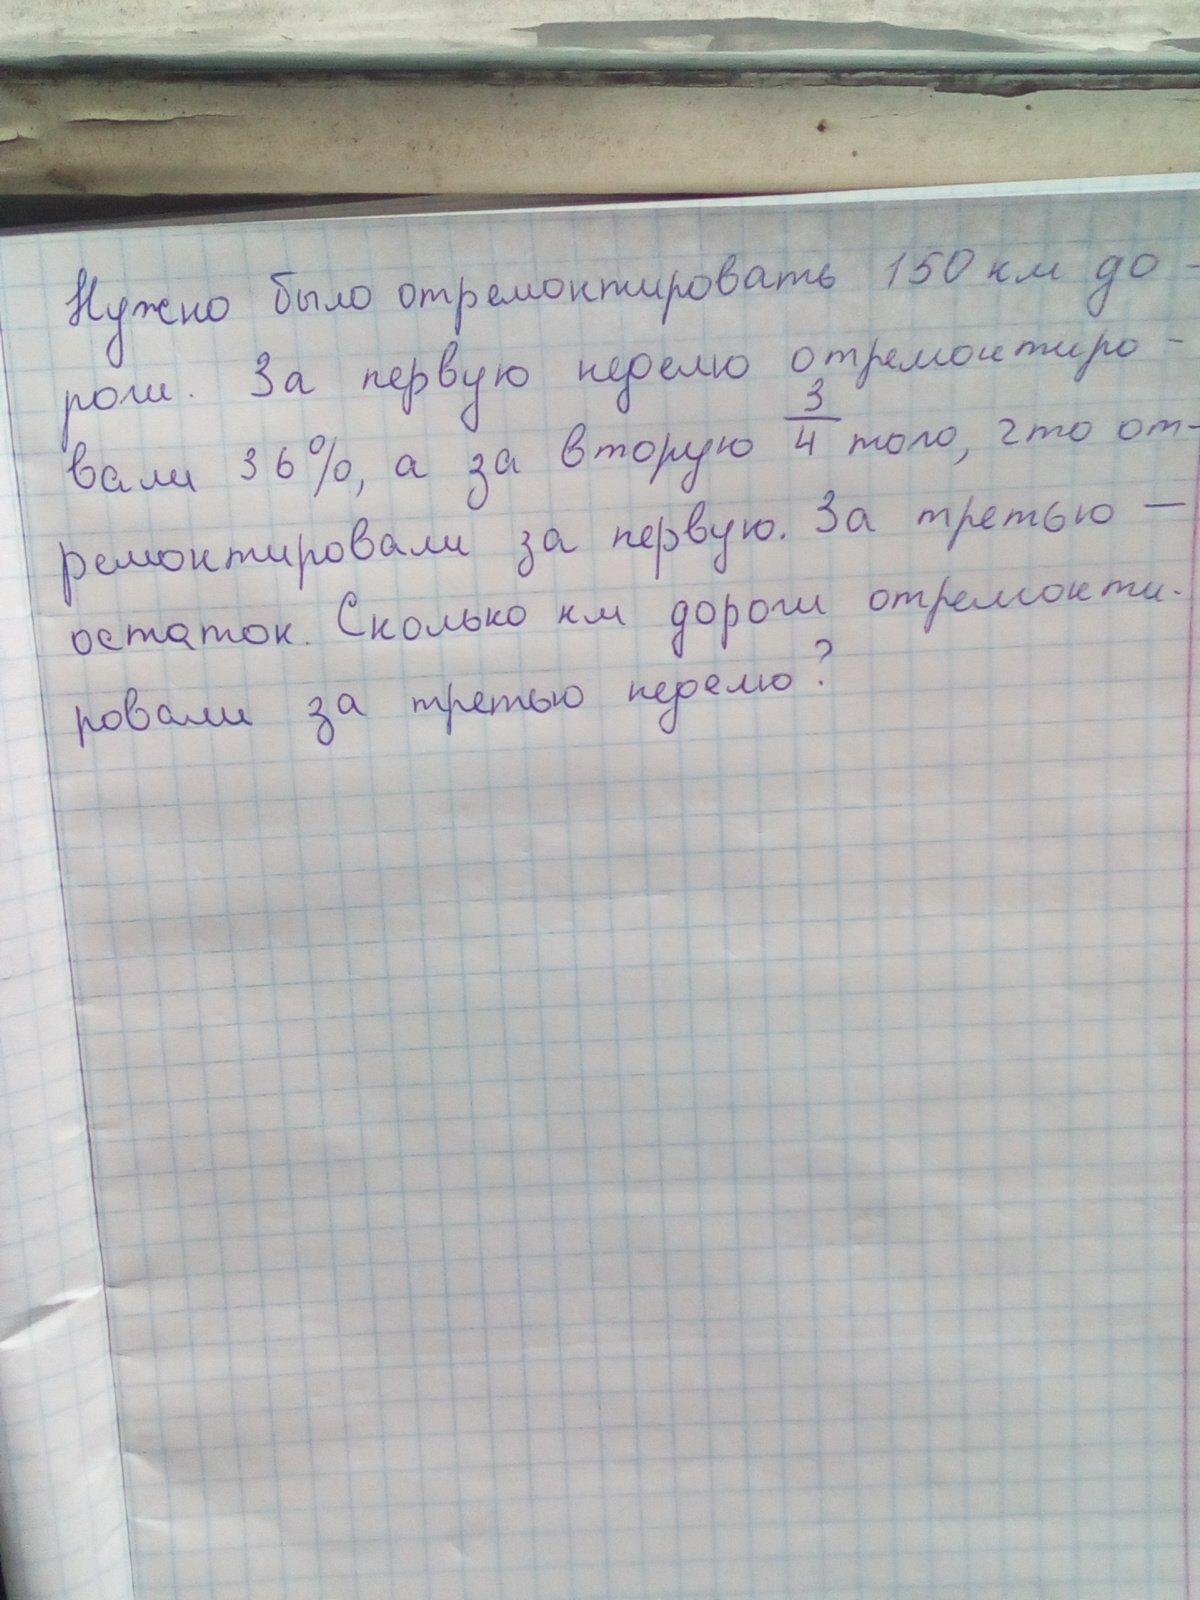 Нужно было отремонтировать 150 км до-
роги. За первую неделю отремонтиро-
вали 36%, а за вторую 3/4 того, что от-
ремонтировали за первую. За третью —
остаток. Сколько км дороги отремонти-
ровали за третью неделю?